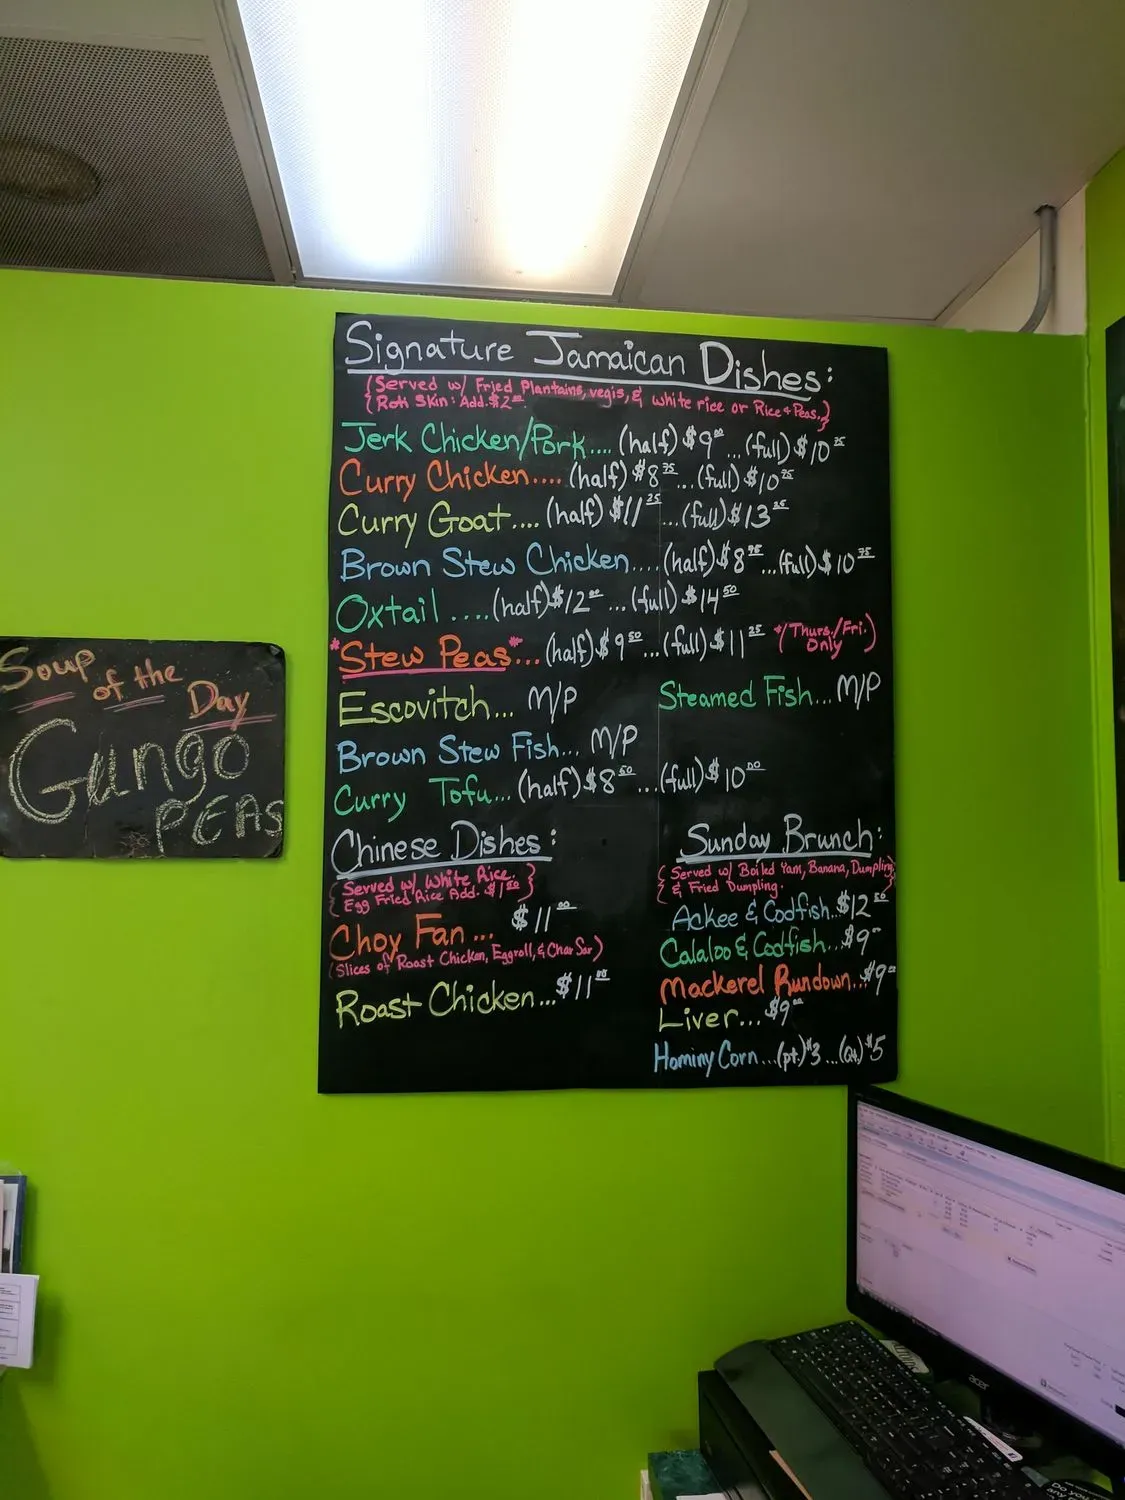 Soup
of the
Day
Gungo
PEAS
Signature Jamaican Dishes:
(Served w/ Fried Plantains, vegis, & white rice or Rice & Peas.)
(Roti Skin: Add. $2.00
Jerk Chicken/Pork.... (half) $9.00 ...(full) $10.75
Curry Chicken.... (half) $8.75 ...(full) $10.75
Curry Goat.... (half) $11.25 ...(full) $13.25
Brown Stew Chicken.... (half) $8.75 ...(full) $10.75
Oxtail ....(half) $12.00 ...(full) $14.50
*Stew Peas*... (half) $9.50 ...(full) $11.25 *(Thurs./Fri. Only)
Escovitch... M/P
Steamed Fish... M/P
Brown Stew Fish... M/P
Curry Tofu... (half) $8.50 ...(full) $10.00
Chinese Dishes:
{Served w/ White Rice.}
{Egg Fried Rice Add. $1.50}
Choy Fan... $11.00
(Slices of Roast Chicken, Eggroll, & Char Sar)
Roast Chicken... $11.00
Sunday Brunch:
{Served w/ Boiled Yam, Banana, Dumpling,
& Fried Dumpling.}
Ackee & Codfish... $12.50
Calaloo & Codfish... $9.00
Mackerel Rundown... $9.00
Liver... $9.00
Hominy Corn...(pt.) $3 ...(Qt.) $5
acer